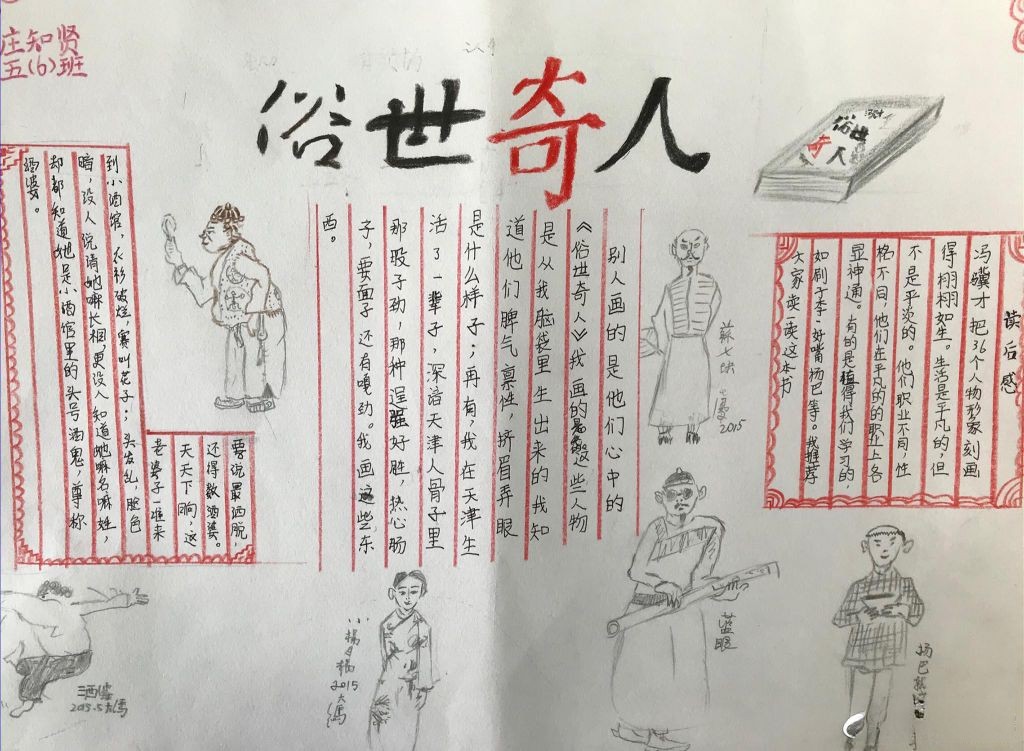 庄知贤
五(6)班
俗世奇人
俗世
奇人
读后感
冯骥才把36个人物形象刻画
得栩栩如生。生活是平凡的，但
不是平淡的。他们职业不同，性
格不同，他们在平凡的的职业上各
显神通。有的是值得我们学习的，
如刷子李、好嘴杨巴等。我推荐
大家读一读这本书
别人画的是他们心中的
《俗世奇人》我画的是这些人物
是从我脑袋里生出来的我知
道他们脾气禀性，挤眉弄眼
是什么样子；再有，我在天津生
活了一辈子，深谙天津人骨子里
那股子劲，那种逞强好胜，热心肠
子，要面子还有嘎劲。我画这些东
西。
要说最洒脱，
还得数酒婆。
天天下晌，这
老婆子一准来
到小酒馆，衣衫破烂，赛叫花子；头发乱，脸色
暗，没人说清她嘛长相，更没人知道她嘛名嘛姓，
却都知道她是小酒馆里的头号酒鬼，尊称
酒婆。
苏七块
2015
蓝眼
杨巴
小杨月楼
2015
大冯
酒婆
2015.5大冯